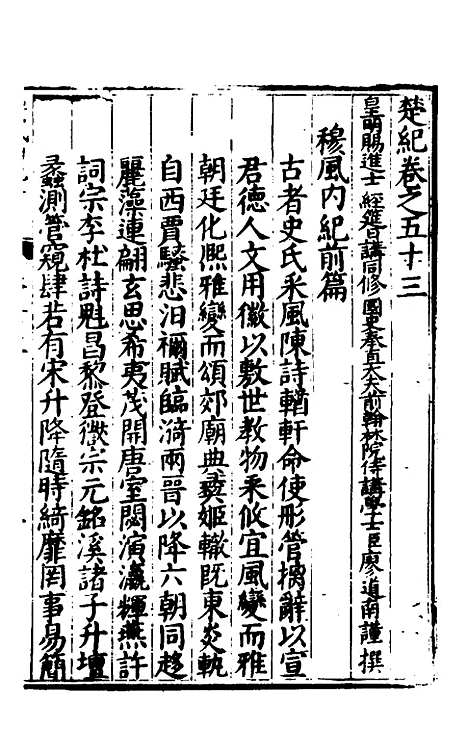 楚紀卷之五十三
皇明賜進士經筵日講同修國史奉直大夫前翰林院侍講學士臣廖道南謹撰
穆風内紀前篇
古者史氏采風陳詩輶軒命使彤管摛辭以宣
君德人文用徽以敷世教物采攸宜風變而雅
朝廷化熙雅變而頌郊廟典蓺姬轍既東炎軌
自西賈騷悲汨禰賦臨漪兩晉以降六朝同趍
麗藻連翩玄思希夷茂開唐室閎演瀛輝燕許
詞宗李杜詩魁昌黎登徵宗元銘溪諸子升壇
蠡測管窺肆若有宋升降隨時綺靡罔事易簡